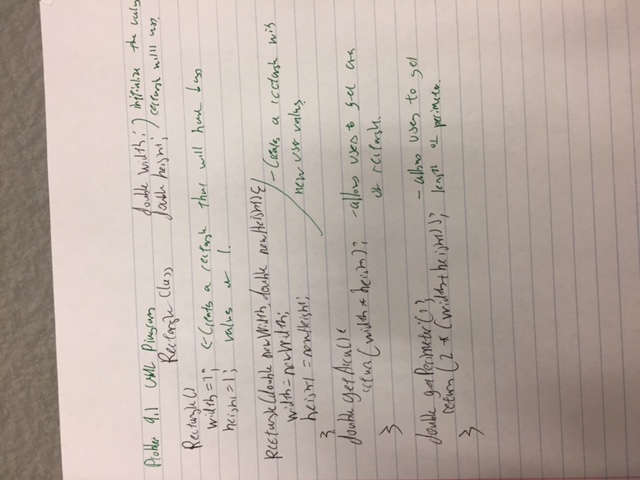 Problem 9.1 UML Diagram
Rectangle Class
double width; ) initialize the values
double height; rectangle will use.
Rectangle()
width = 1; ← Creates a rectangle that will have base
height = 1; values of 1.
Rectangle(double newWidth, double newHeight){
width = newWidth; - Creates a rectangle with
height = newHeight; new user values
}
double getArea(){
return (width * height); - allows users to get area
} of rectangle.
double getPerimeter(){
return (2 * (width + height)); - allows users to get
} length of perimeter.